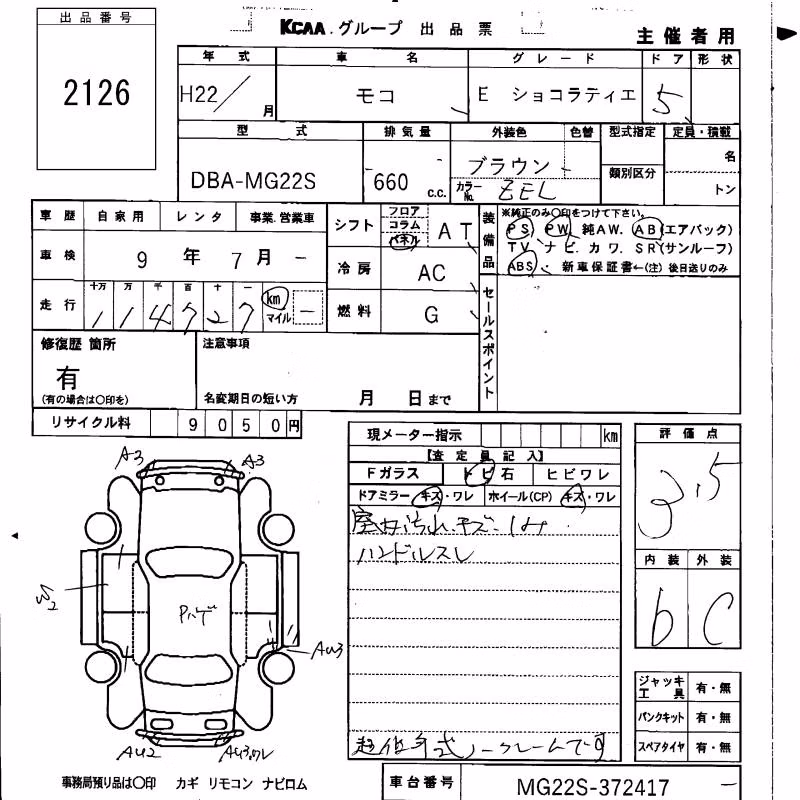 出品番号
2126
KCAA.グループ 出品票
主催者用
年式 車名 グレード ドア 形状
H22/ 月 モコ E ショコラティエ 5
型式 排気量 外装色 色替 型式指定 定員・積載
DBA-MG22S 660 c.c. ブラウン 類別区分 名
カラーNo. ZEL トン
車歴 自家用 レンタ 事業.営業車
シフト フロア コラム パネル AT
装備品 ※純正のみ○印をつけて下さい。
PS PW 純AW. AB(エアバック)
TV. ナビ. カワ. SR(サンルーフ)
ABS. 新車保証書←(注) 後日送りのみ
車検 9年 7月 -
冷房 AC
走行 十万 万 千 百 十 一
114727 km マイル -
燃料 G
セールスポイント
修復歴 箇所 注意事項
有
(有の場合は○印を) 名変期日の短い方 月 日まで
リサイクル料 9050円
現メーター指示 km
【査定員記入】
Fガラス トビ石 ヒビワレ
ドアミラー キズ・ワレ ホイール(CP) キズ・ワレ
室内汚れ.キズ.
ハンドルスレ
低年式ノークレームです
評価点
3.5
内装 外装
b C
ジャッキ工具 有・無
パンクキット 有・無
スペアタイヤ 有・無
A3 A3
W2
Pハゲ
AU3
AU2 AU3.ワレ
事務局預り品は○印 カギ リモコン ナビロム
車台番号 MG22S-372417 -